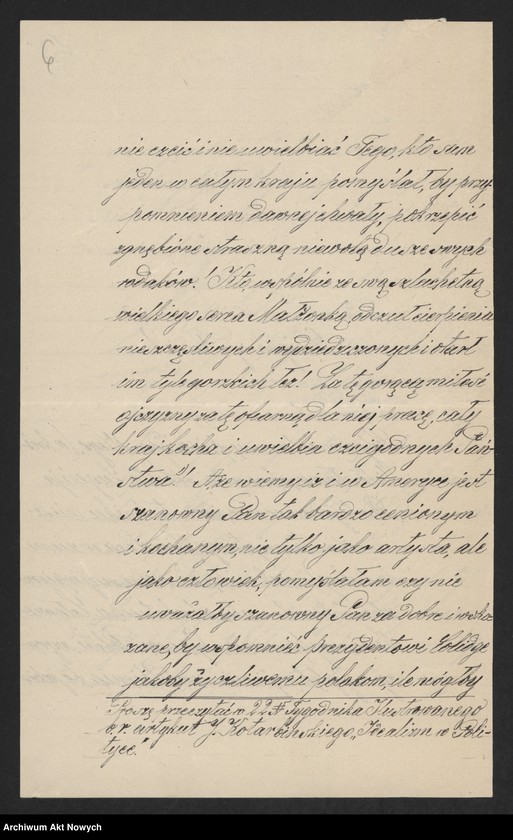 6
nie czcić i nie uwielbiać Tego, kto sam
jeden w całym kraju pomyślał, by przy-
pomnieniem dawnej chwały, pokrzepić
zgnębione straszną niewolą dusze swych
rodaków! Kto, wspólnie ze swą szlachetną
wielkiego serca Małżonką, odczuł cierpienia
nieszczęśliwych i wydziedziczonych i otarł
im tyle gorzkich łez! Za tę gorącą miłość
ojczyzny za tę ofiarną dla niej pracę, cały
kraj kocha i uwielbia czcigodnych Pań-
stwa! A że wiemy iż i w Ameryce jest
szanowny Pan tak bardzo cenionym
i kochanym, nie tylko jako artysta, ale
jako człowiek, pomyślałam czy nie
uważałby szanowny Pan za dobre i wska-
zane, by wspomnieć prezydentowi Colidge
jakoby życzliwemu polakom, ile mógłby
Proszę przeczytać w 22 № Tygodnika Ilustrowanego
b.r. artykuł J. Kotarbińskiego „Idealizm w Poli-
tyce."
Archiwum Akt Nowych